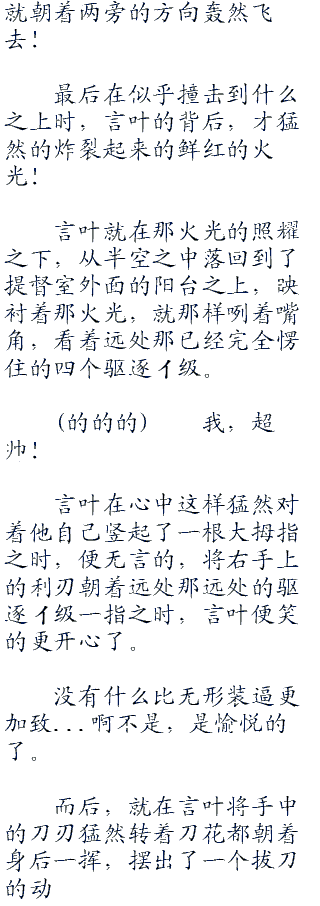 就朝着两旁的方向轰然飞
去！
最后在似乎撞击到什么
之上时，言叶的背后，才猛
然的炸裂起来的鲜红的火
光！
言叶就在那火光的照耀
之下，从半空之中落回到了
提督室外面的阳台之上，映
衬着那火光，就那样咧着嘴
角，看着远处那已经完全愣
住的四个驱逐イ级。
(的的的)　　我，超
帅！
言叶在心中这样猛然对
着他自己竖起了一根大拇指
之时，便无言的，将右手上
的利刃朝着远处那远处的驱
逐イ级一指之时，言叶便笑
的更开心了。
没有什么比无形装逼更
加致...啊不是，是愉悦的
了。
而后，就在言叶将手中
的刀刃猛然转着刀花都朝着
身后一挥，摆出了一个拔刀
的动